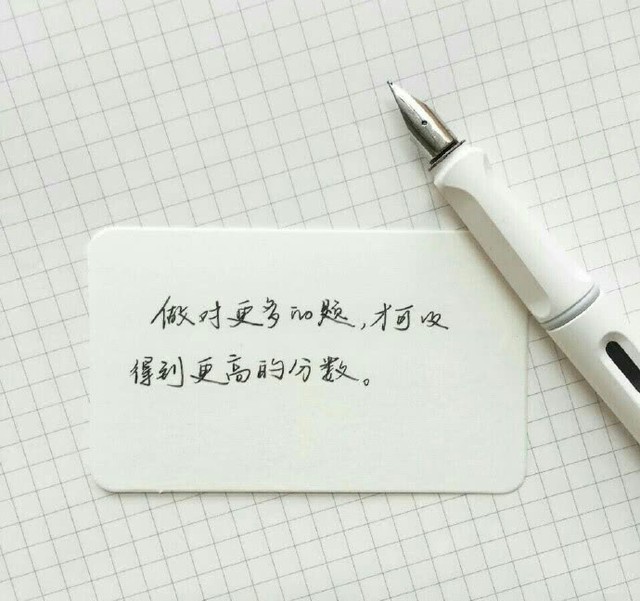 做对更多的题,才可以
得到更高的分数。